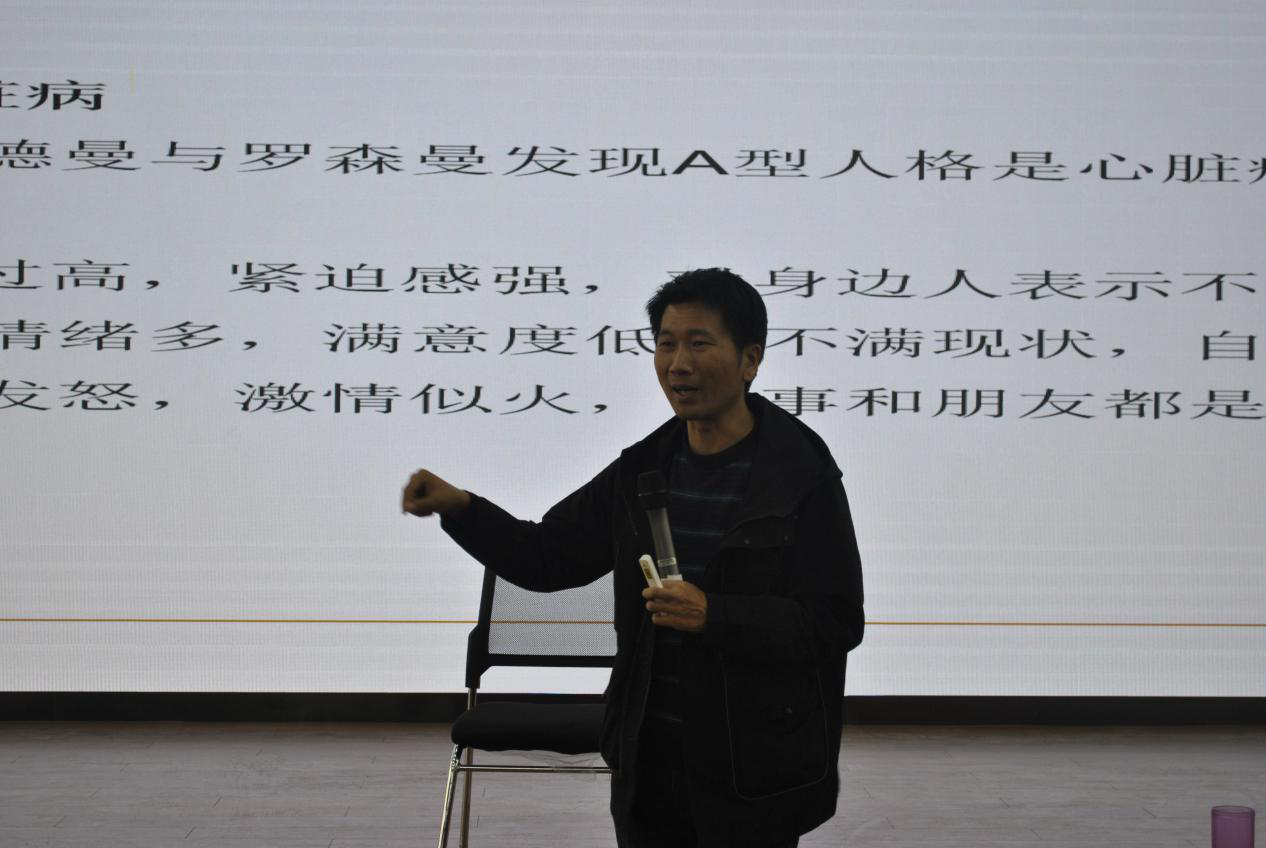 病
德曼与罗森曼发现A型人格是心脏
过高，紧迫感强， 身边人表示不
情绪多，满意度低 不满现状，自
发怒，激情似火， 事和朋友都是